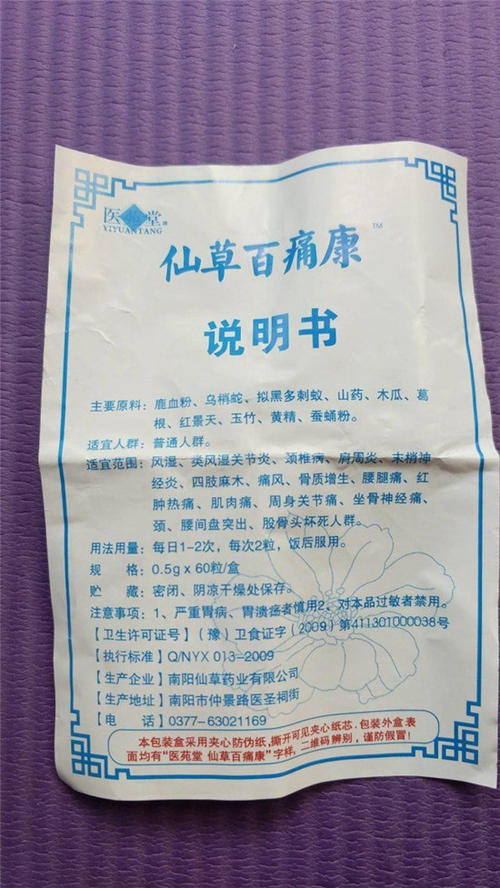 医苑堂
YIYUANTANG
仙草百痛康™
说明书
主要原料：鹿血粉、乌梢蛇、拟黑多刺蚁、山药、木瓜、葛
根、红景天、玉竹、黄精、蚕蛹粉。
适宜人群：普通人群。
适宜范围：风湿、类风湿关节炎、颈椎病、肩周炎、末梢神
经炎、四肢麻木、痛风、骨质增生、腰腿痛、红
肿热痛、肌肉痛、周身关节痛、坐骨神经痛、
颈、腰间盘突出、股骨头坏死人群。
用法用量：每日1-2次，每次2粒，饭后服用。
规　格：0.5g x 60粒/盒
贮　藏：密闭、阴凉干燥处保存。
注意事项：1、严重胃病、胃溃疡者慎用2、对本品过敏者禁用。
【卫生许可证号】（豫）卫食证字（2009）第411301000038号
【执行标准】Q/NYX 013-2009
【生产企业】南阳仙草药业有限公司
【生产地址】南阳市仲景路医圣祠街
【电　话】0377-63021169
本包装盒采用夹心防伪纸，撕开可见夹心纸芯，包装外盒表
面均有“医苑堂 仙草百痛康”字样，二维码辨别，谨防假冒！